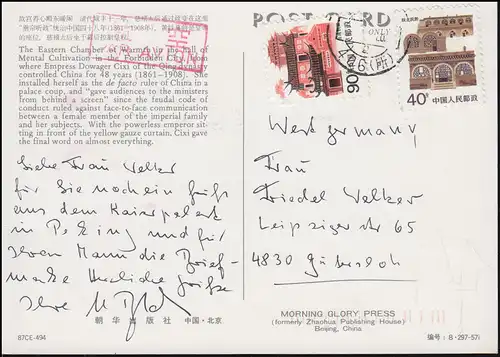 POST CARD
ONLY
The Eastern Chamber of Warmth of the Hall of
Mental Cultivation in the Forbidden City from
where Empress Dowager Cixi of the Qing dynasty
controlled China for 48 years (1861-1908). She
installed herself as the de facto ruler of China in a
palace coup, and "gave audiences to the ministers
from behind a screen" since the feudal code of
conduct ruled against face-to-face communication
between a female member of the imperial family
and her subjects. With the powerless emperor sit-
ting in front of the yellow gauze curtain, Cixi gave
the final word on almost everything.
90
40分 中国人民邮政
Liebe Frau Welker
für Sie noch ein Gruß
aus dem Kaiserpalast
in Peking und für
Ihren Mann die Brief-
marke Herzliche Grüße
Ihre
West germany
Frau
Friedel Welker
Leipziger str 65
4830 Gütersloh
87CE-494
朝华出版社 中国·北京
MORNING GLORY PRESS
(formerly Zhaohua Publishing House)
Beijing, China
编号：B·297-57i